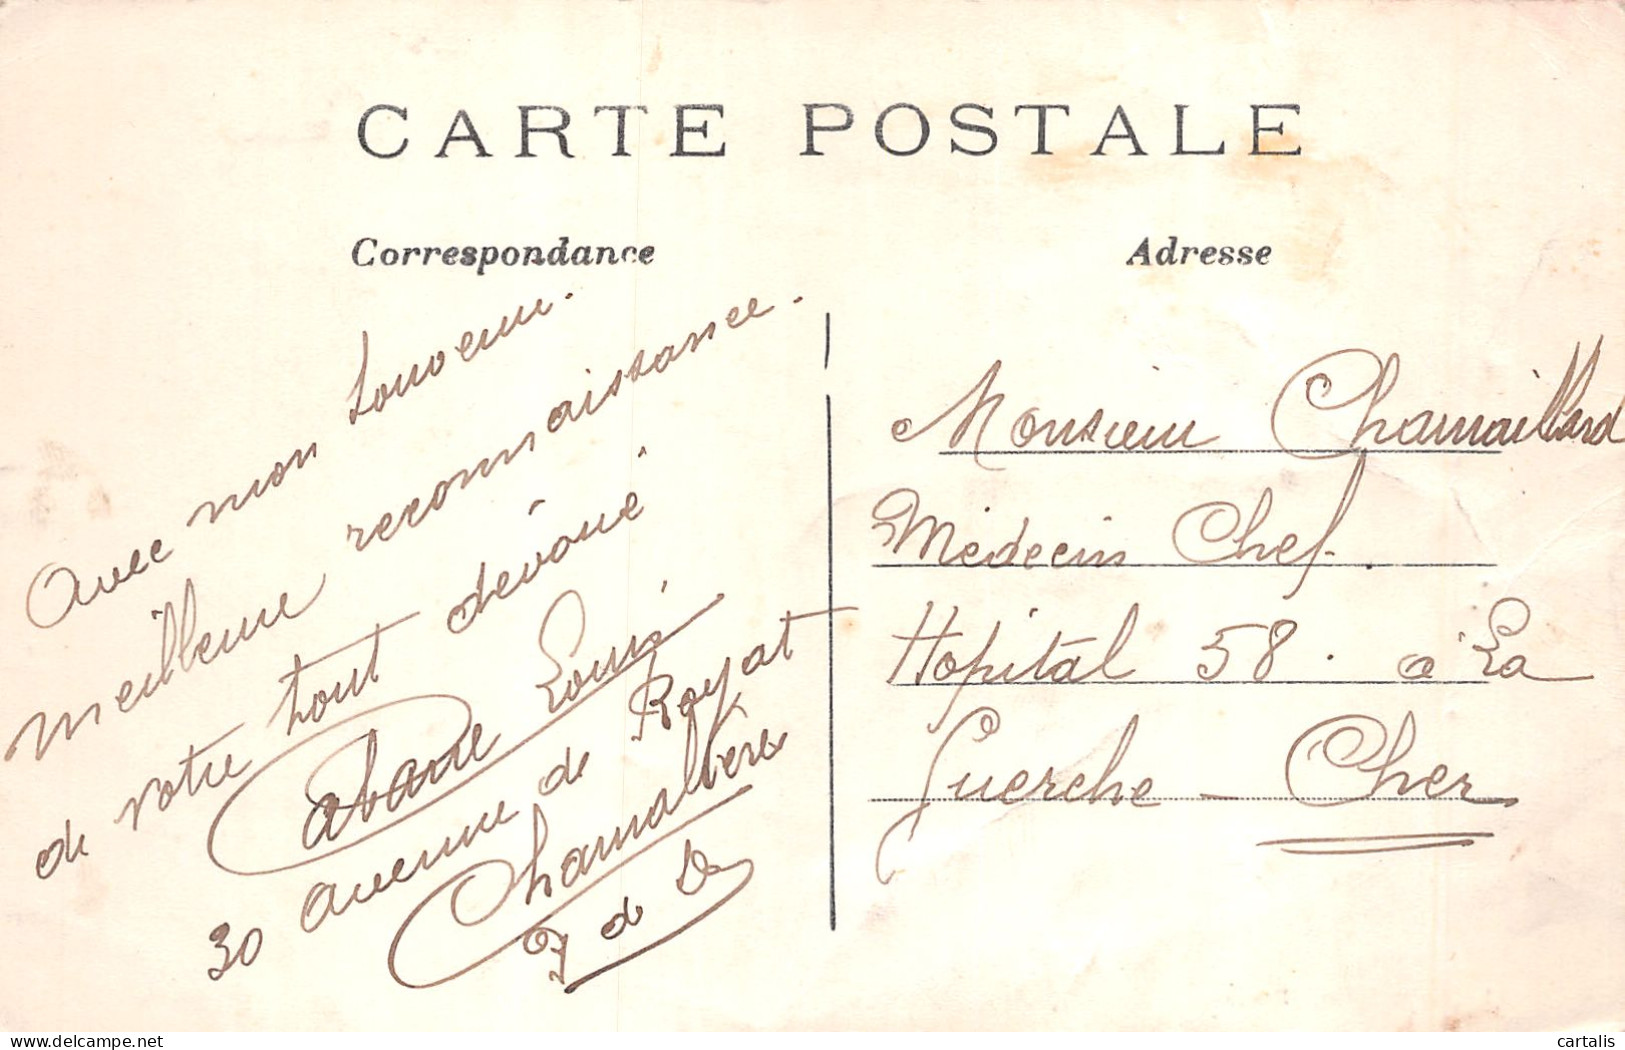 CARTE POSTALE
Correspondance
Avec mon souvenir.
meilleure reconnaissance.
de votre tout dévoué
Louis
30 avenue de Royat
Chamalières
P de D
Adresse
Monsieur Chamaillard
Médecin Chef.
Hopital 58. à La
Guerche - Cher
cartalis
delcampe.net